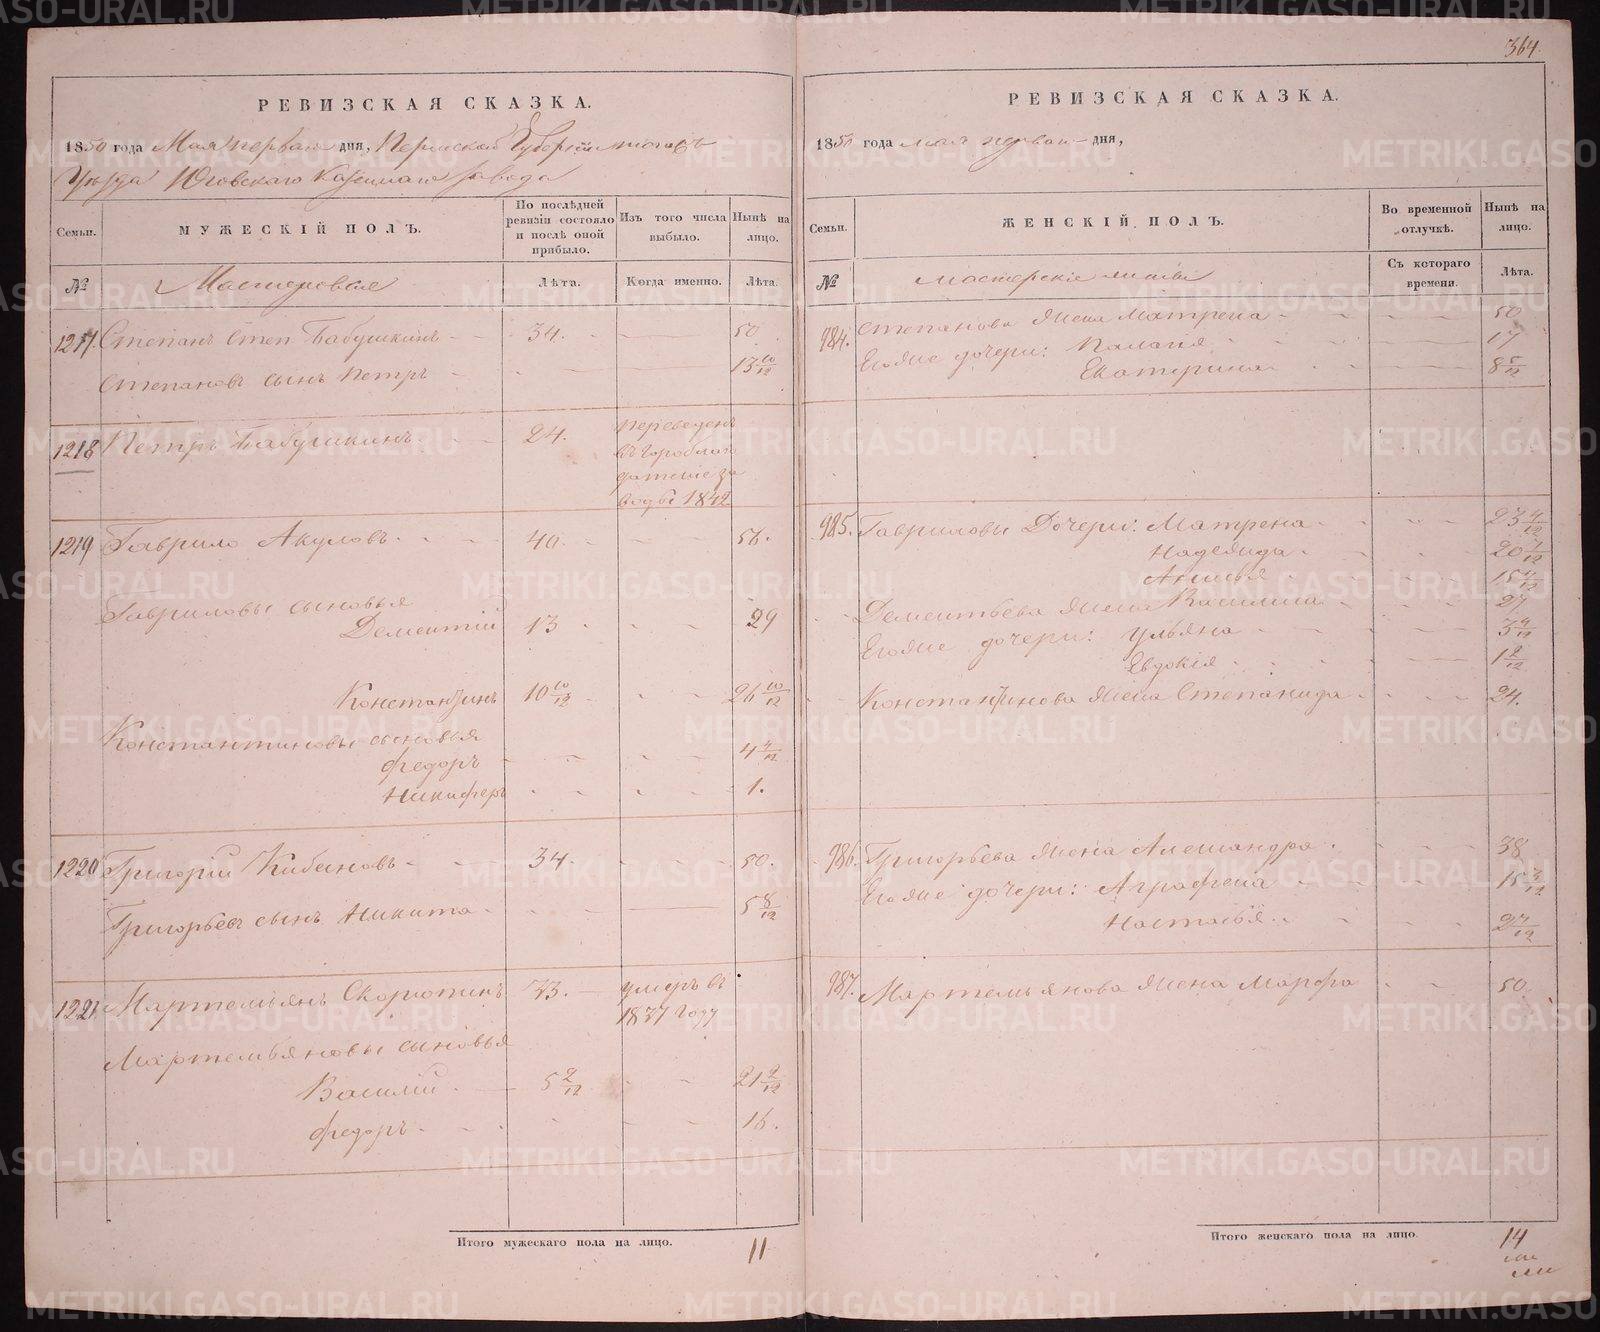 364.
РЕВИЗСКАЯ СКАЗКА.
1850 года Мая первая дня, Пермской Губернии
Уѣзда Юговскаго Казеннаго завода
Семьи.
МУЖЕСКІЙ ПОЛЪ.
По послѣдней ревизіи состояло и послѣ оной прибыло.
Изъ того числа выбыло.
Нынѣ на лицо.
№
Мастеровые
Лѣта.
Когда именно.
Лѣта.
1217. Степанъ Степ Бабушкинъ 34. 50
Степановъ сынъ Петръ 13 10/12
1218 Петръ Бабушкинъ 24. переведенъ
въ Гороблаго
датскіе за
воды 1842
1219 Гаврило Акуловъ 40. 56.
Гавриловы сыновья
Дементій 13 29
Константинъ 10 10/12 26 10/12
Константиновы сыновья
Федоръ 4 4/12
Никифоръ 1.
1220 Григорій Кибановъ 34. 50.
Григорьевъ сынъ Никита 5 8/12
1221 Мартемьянъ Скорютинъ 33. умеръ въ
1837 году
Мартемьяновы сыновья
Василій 5 2/12 21 2/12
Федоръ 16.
Итого мужескаго пола на лицо. 11
РЕВИЗСКАЯ СКАЗКА.
1850 года мая первая дня,
Семьи.
ЖЕНСКІЙ ПОЛЪ.
Во временной отлучкѣ.
Нынѣ на лицо.
№
мастерскіе
Съ котораго времени.
Лѣта.
984. Степанова жена Матрена 50
Егоже дочери: Палагея 17
Екатерина 8 5/12
985. Гавриловы Дочери: Матрена 23 4/12
Надежда 20 1/12
Анисья
Дементьева жена Василиса 27
Егоже дочери: Ульяна
Евдокія 1 2/12
Константинова жена Степанида 24.
986. Григорьева жена Александра 38
Егоже дочери: Аграфена
Настасья
987. Мартемьянова жена Марфа 50
Итого женскаго пола на лицо. 14
METRIKI.GASO-URAL.RU